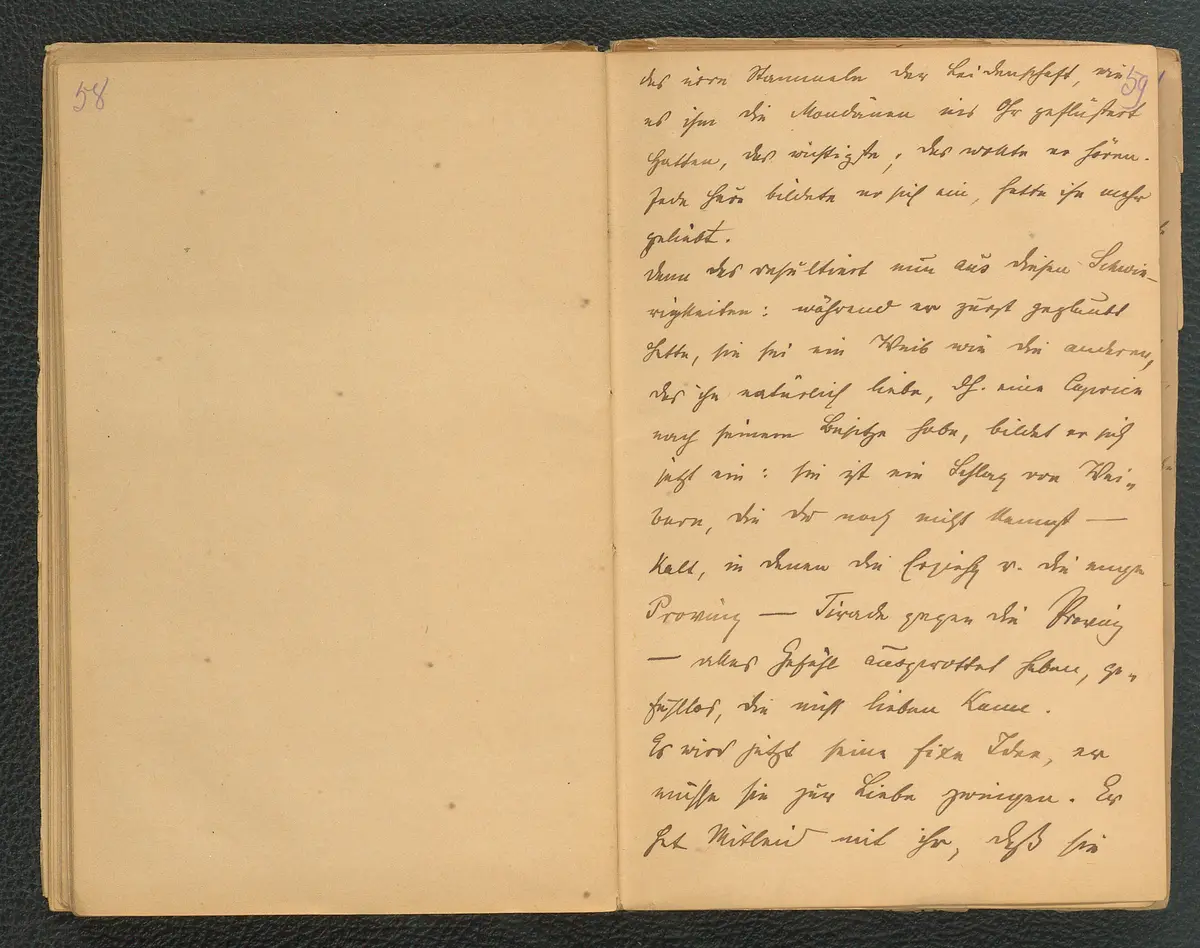 58
59
das irre Stammeln der Leidenschaft, wie
es ihm die Mondänen ins Ohr geflüstert
hatten, das wichtigste, das wollte er hören.
Jede Hure bildete er sich ein, hatte ihn mehr
geliebt.
Denn das resultiert nun aus diesen Schwie-
rigkeiten: während er zuerst geglaubt
hatte, sie sei ein Weib wie die anderen,
das ihn natürlich liebe, dh. eine Caprice
nach seinem Besitze habe, bildet er sich
jetzt ein: sie ist ein Schlag von Wei-
bern, die du noch nicht kennst —
kalt, in denen die Erziehg u. die enge
Provinz — Tirade gegen die Provinz
— alles Gefühl ausgerottet haben, ge-
fühllos, die nicht lieben kann.
Es wird jetzt seine fixe Idee, er
müsse sie zur Liebe zwingen. Er
hat Mitleid mit ihr, daß sie